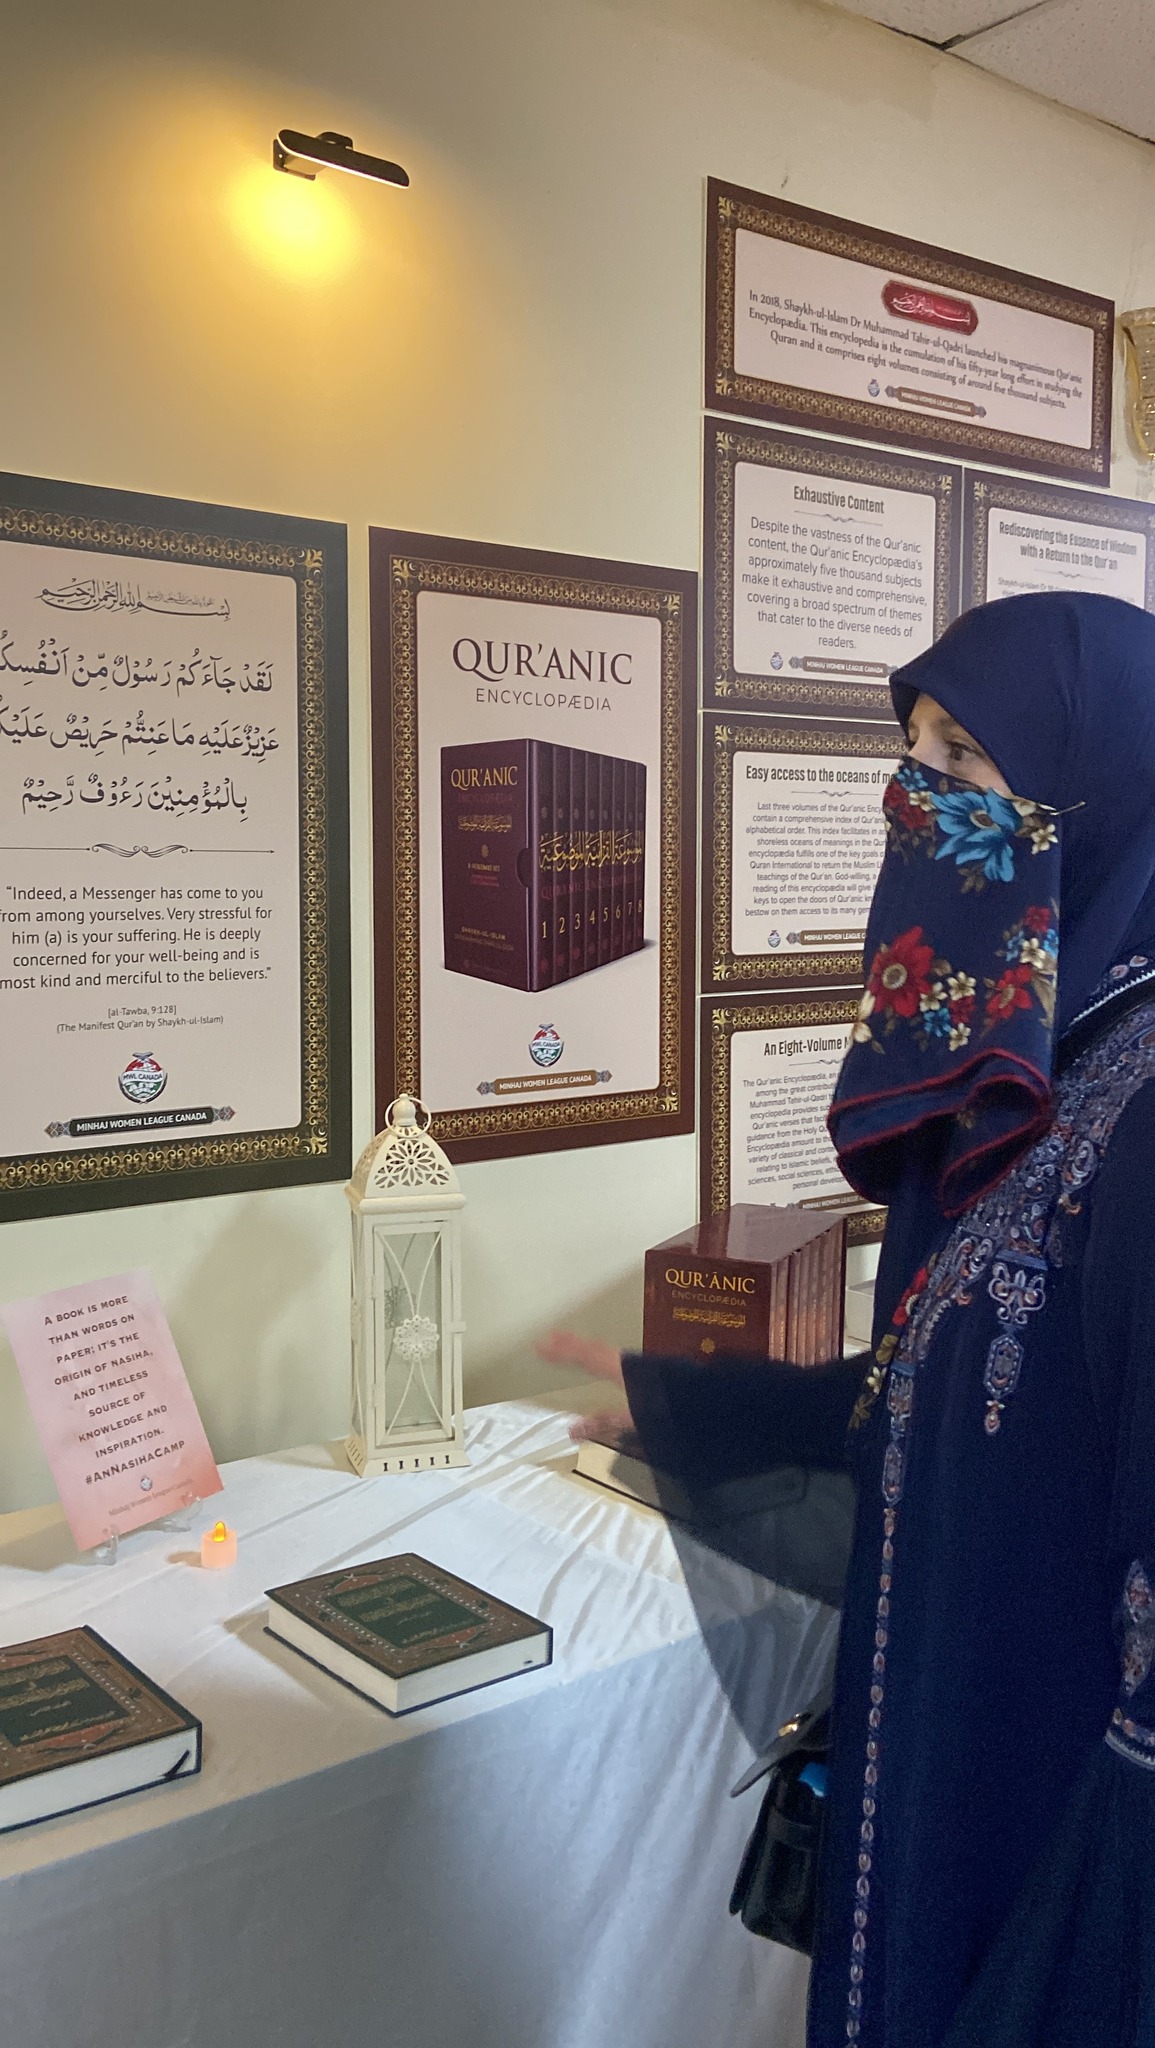 لَقَدْ جَآءَكُمْ رَسُوْلٌ مِّنْ اَنْفُسِكُ
عَزِيْزٌ عَلَيْهِ مَا عَنِتُّمْ حَرِيْصٌ عَلَيْكُ
بِالْمُؤْمِنِيْنَ رَءُوْفٌ رَّحِيْمٌ
“Indeed, a Messenger has come to you
from among yourselves. Very stressful for
him (a) is your suffering. He is deeply
concerned for your well-being and is
most kind and merciful to the believers.”
[al-Tawba, 9:128]
(The Manifest Qur'an by Shaykh-ul-Islam)
MWL CANADA
MINHAJ WOMEN LEAGUE CANADA
QUR'ANIC
ENCYCLOPÆDIA
QUR'ANIC
ENCYCLOPÆDIA
8 VOLUMES SET
SHAYKH-UL-ISLAM
1 2 3 4 5 6 7 8
MWL CANADA
MINHAJ WOMEN LEAGUE CANADA
In 2018, Shaykh-ul-Islam Dr Muhammad Tahir-ul-Qadri launched his magnanimous Qur'anic
Encyclopædia. This encyclopedia is the cumulation of his fifty-year long effort in studying the
Quran and it comprises eight volumes consisting of around five thousand subjects.
MINHAJ WOMEN LEAGUE CANADA
Exhaustive Content
Despite the vastness of the Qur'anic
content, the Qur'anic Encyclopædia's
approximately five thousand subjects
make it exhaustive and comprehensive,
covering a broad spectrum of themes
that cater to the diverse needs of
readers.
MINHAJ WOMEN LEAGUE CANADA
Rediscovering the Essence of Wisdom
with a Return to the Qur'an
Shaykh-ul-Islam Dr M
Easy access to the oceans of me
Last three volumes of the Qur'anic Ency
contain a comprehensive index of Qur'an
alphabetical order. This index facilitates in a
shoreless oceans of meanings in the Qur
encyclopedia fulfills one of the key goals
Quran International to return the Muslim U
teachings of the Qur'an. God-willing, a
reading of this encyclopedia will give
keys to open the doors of Qur'anic kn
bestow on them access to its many gem
MINHAJ WOMEN LEAGUE CA
An Eight-Volume M
The Qur'anic Encyclopædia, an
among the great contribut
Muhammad Tahir-ul-Qadri
encyclopedia provides su
Qur'anic verses that faci
guidance from the Holy Qu
Encyclopædia amount to th
variety of classical and conte
relating to Islamic beliefs,
sciences, social sciences, ethic
personal develop
A BOOK IS MORE
THAN WORDS ON
PAPER; IT'S THE
ORIGIN OF NASIHA,
AND TIMELESS
SOURCE OF
KNOWLEDGE AND
INSPIRATION.
#ANNASIHACAMP
Minhaj Women League Canada
QUR'ĀNIC
ENCYCLOPÆDIA